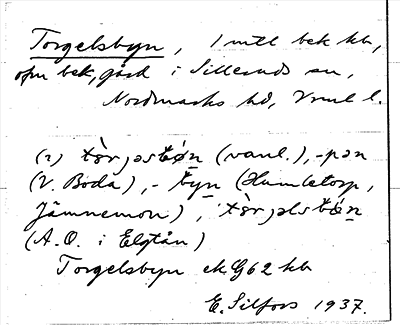 Torgelsbyn, 1 mtl bek kb,
ofm bek, gård i Sillerud sn,
Nordmarks hd, Vrml l.
(2) tò̤rjəsbø̀n (vanl.), -pən
(V. Boda), - byn (Humletorp,
Jämnemon), tò̤rjəlsbø̀n
(A.O. i Elgtån)
Torgelsbyn ek G62 kb
E. Silfors 1937.